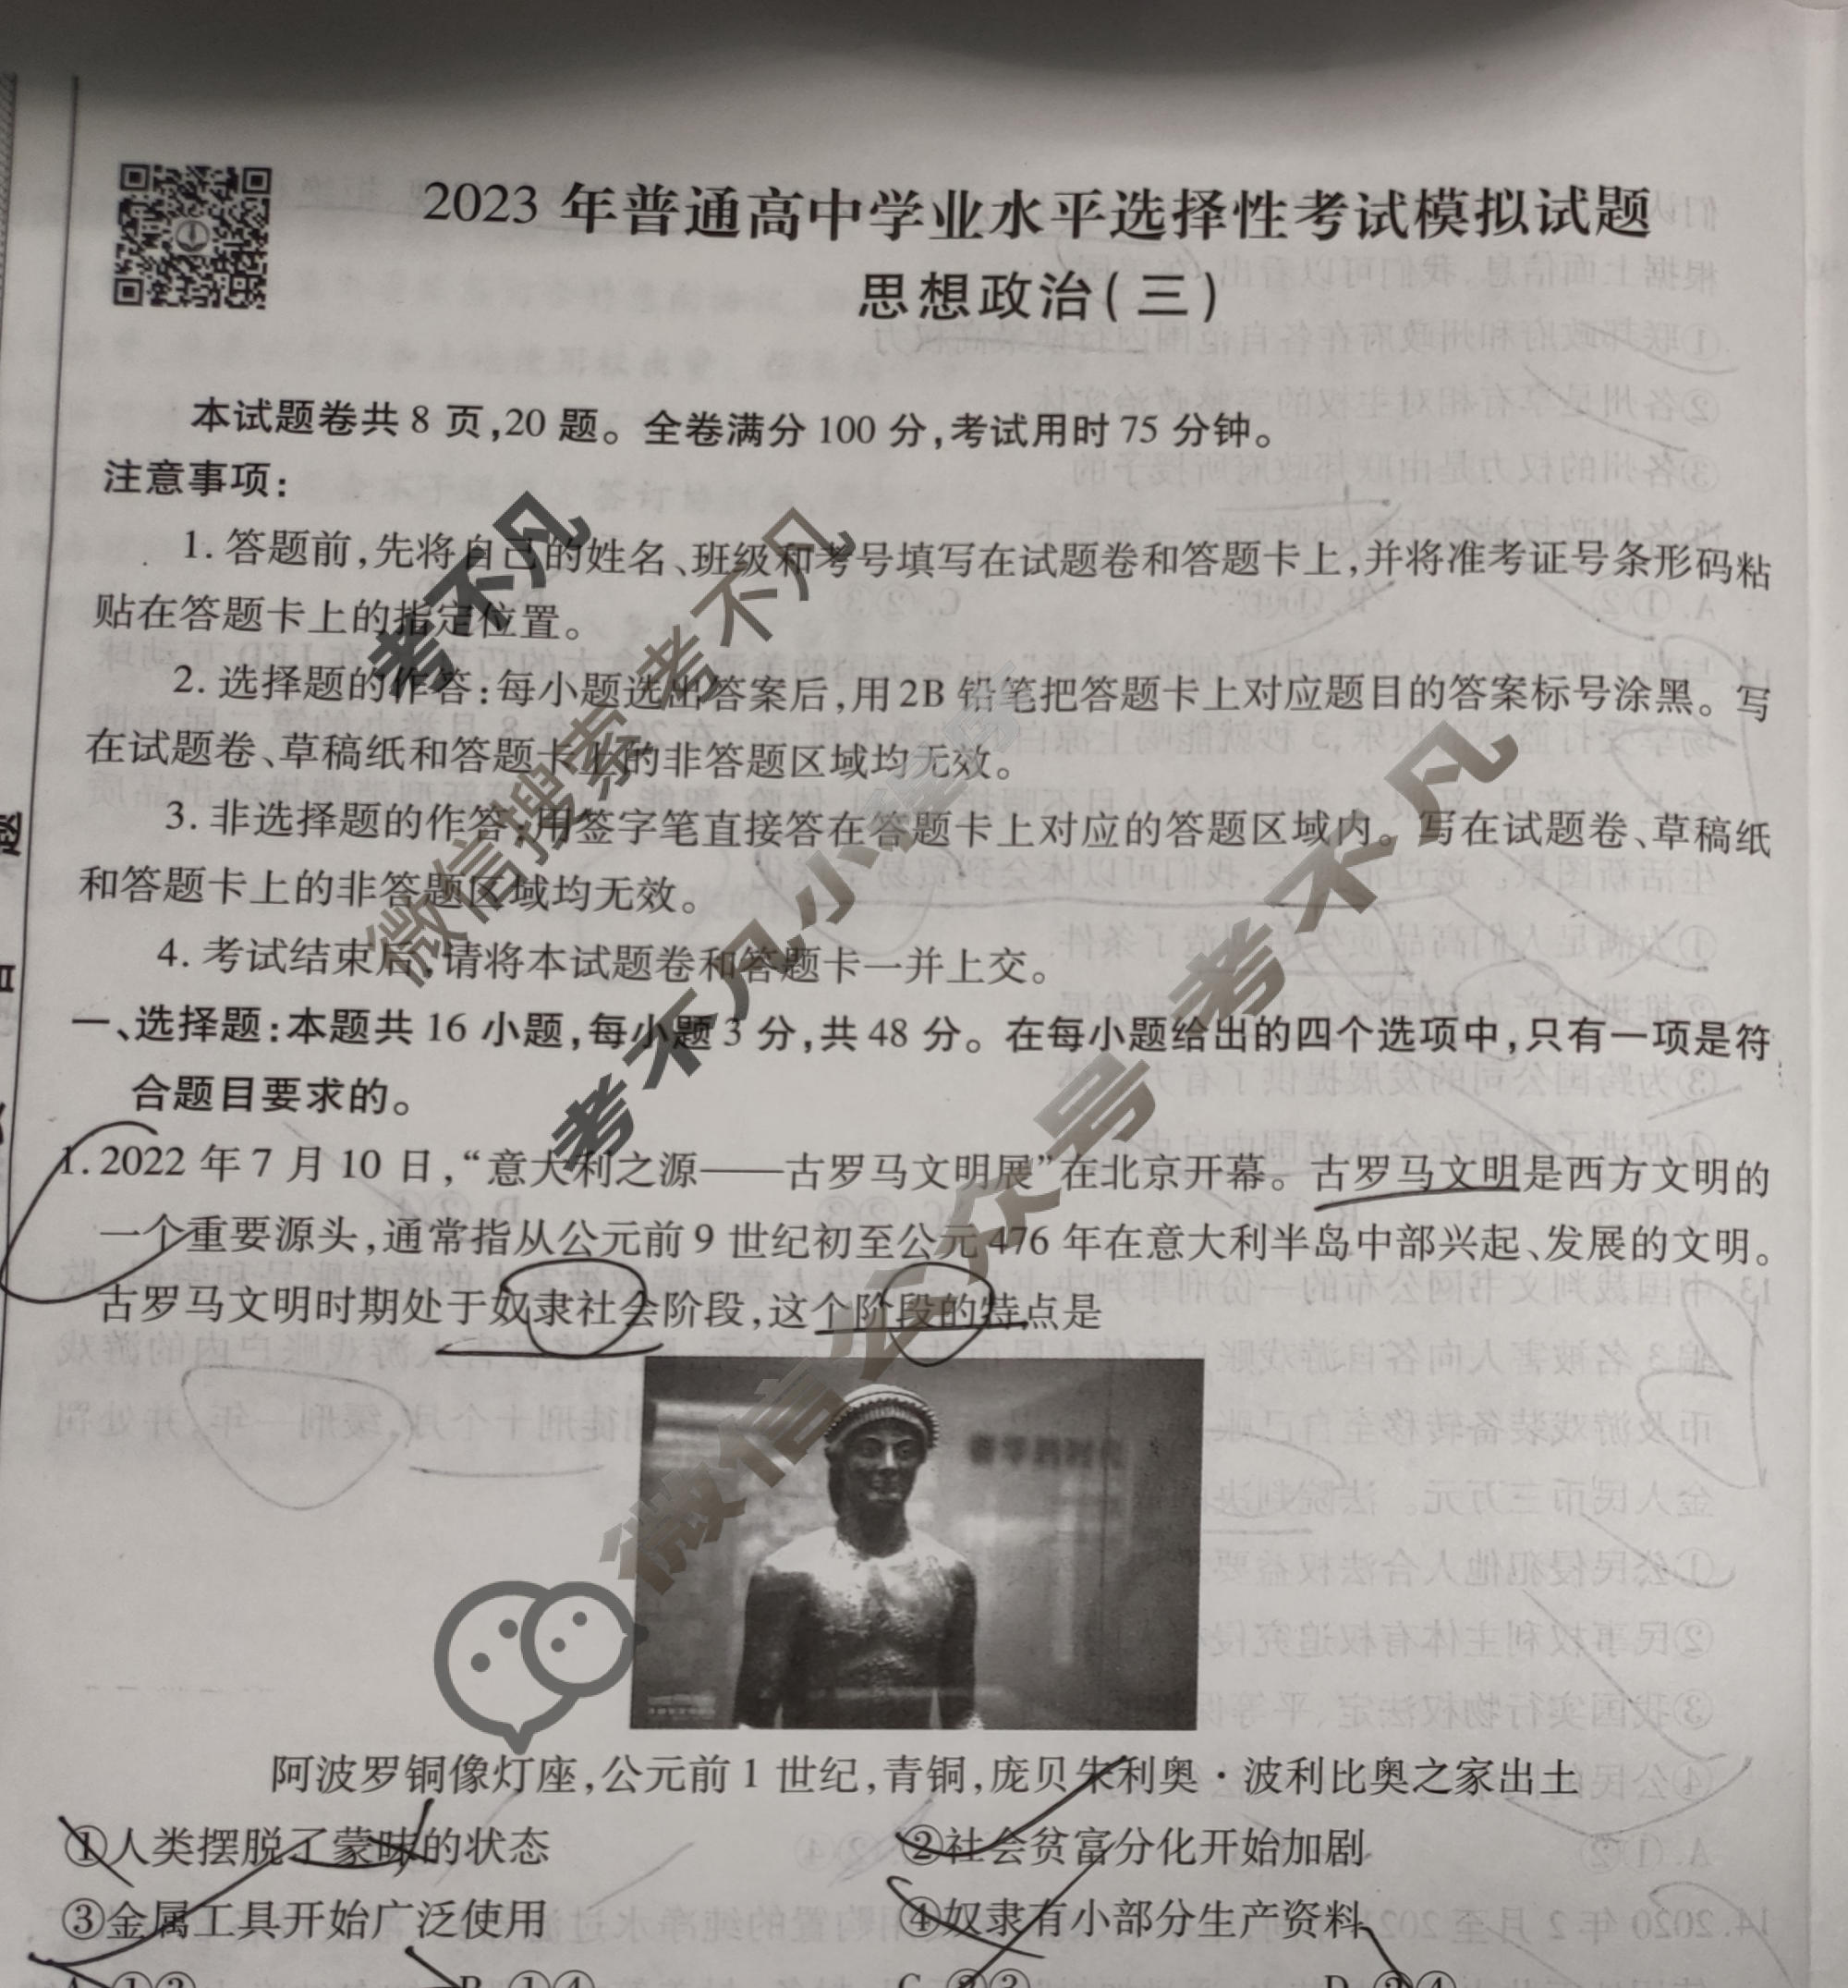 2023 年普通高中学业水平选择性考试模拟试题
思想政治(三)
本试题卷共 8 页,20 题。全卷满分 100 分,考试用时 75 分钟。
注意事项:
1. 答题前,先将自己的姓名、班级和考号填写在试题卷和答题卡上,并将准考证号条形码粘
贴在答题卡上的指定位置。
2. 选择题的作答:每小题选出答案后,用 2B 铅笔把答题卡上对应题目的答案标号涂黑。写
在试题卷、草稿纸和答题卡上的非答题区域均无效。
3. 非选择题的作答:用签字笔直接答在答题卡上对应的答题区域内。写在试题卷、草稿纸
和答题卡上的非答题区域均无效。
4. 考试结束后,请将本试题卷和答题卡一并上交。
一、选择题:本题共 16 小题,每小题 3 分,共 48 分。在每小题给出的四个选项中,只有一项是符
合题目要求的。
1. 2022 年 7 月 10 日,“意大利之源——古罗马文明展”在北京开幕。古罗马文明是西方文明的
一个重要源头,通常指从公元前 9 世纪初至公元 476 年在意大利半岛中部兴起、发展的文明。
古罗马文明时期处于奴隶社会阶段,这个阶段的特点是
阿波罗铜像灯座,公元前 1 世纪,青铜,庞贝朱利奥·波利比奥之家出土
①人类摆脱了蒙昧的状态 ②社会贫富分化开始加剧
③金属工具开始广泛使用 ④奴隶有小部分生产资料
A. ①③ B. ①④ C. ②③ D. ②④
考不凡
微信搜索 考不凡
考不凡小程序
微信公众号 考不凡